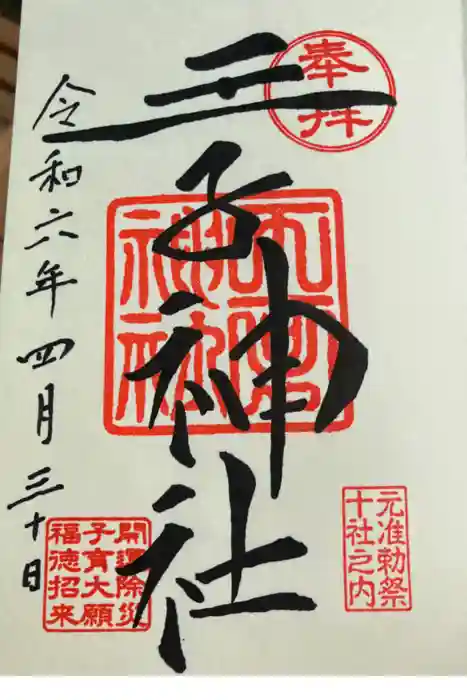 奉拝
王子神社
元准勅祭
十社之内
開運除災
子育大願
福徳招来
令和六年四月三十日